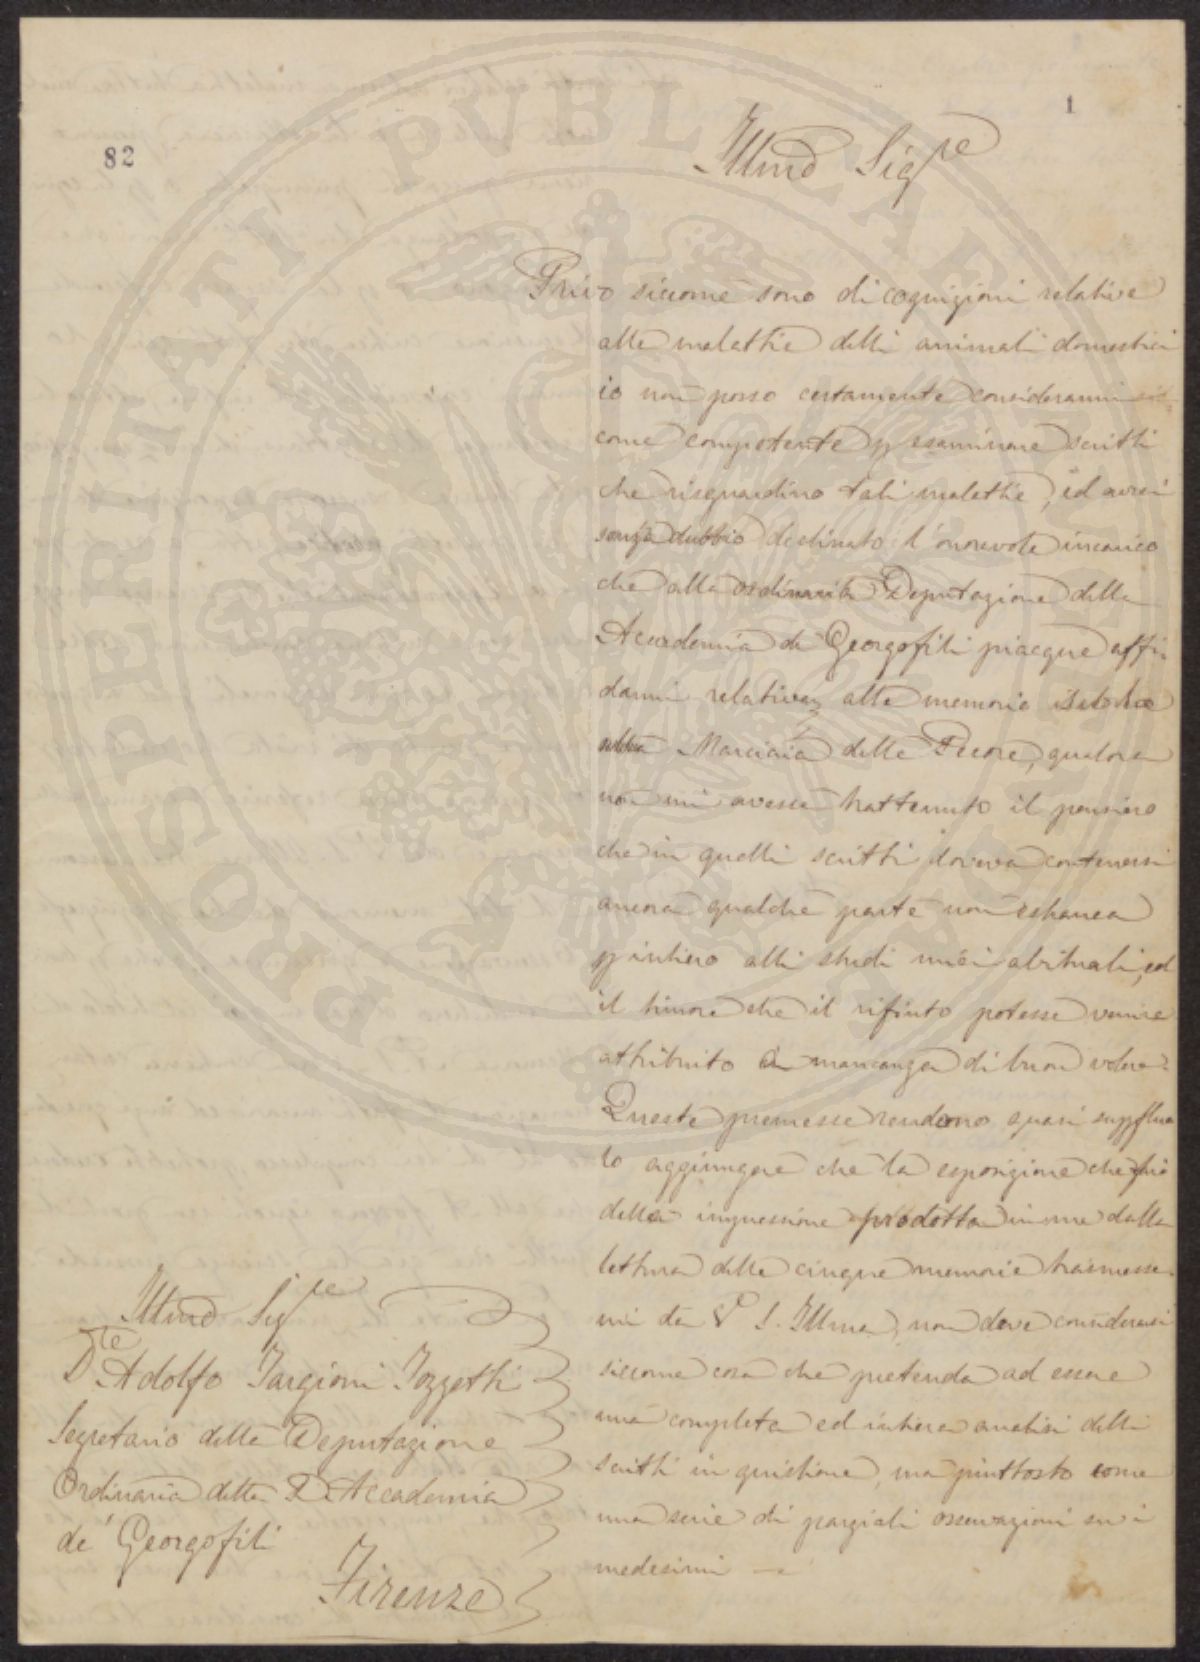 1
82
Illmo Sigre
Privo siccome sono di cognizioni relative
alle malattie delli animali domestici
io non posso certamente considerarmi
come competente p esaminare scritti
che risguardino tali malattie, ed avrei
senza dubbio declinato l'onorevole incarico
che alla ordinaria Deputazione della
Accademia de Georgofili piacque affi-
darmi relativa alle memorie
sulla Marciaia delle Pecore, qualora
non mi avesse trattenuto il pensiero
che in quelli scritti doveva contenersi
ancora qualche parte non estranea
p intiero alli studi miei abituali, ed
il timore che il rifiuto potesse venire
attribuito a mancanza di buon volere.
Queste premesse rendono quasi supfluo
lo aggiungere che la esposizione che
della impressione prodotta in me dalla
lettura delle cinque memorie trasmesse-
mi da V. S. Illma, non deve considerarsi
siccome cosa che pretenda ad essere
una completa ed intiera analisi delli
scritti in quistione, ma piuttosto come
una serie di parziali osservazioni su i
medesimi
Illmo Sigre
Dte Adolfo Targioni Tozzetti
Segretario della Deputazione
Ordinaria della R. Accademia
de' Georgofili
Firenze
PROSPERITATI PUBLICAE